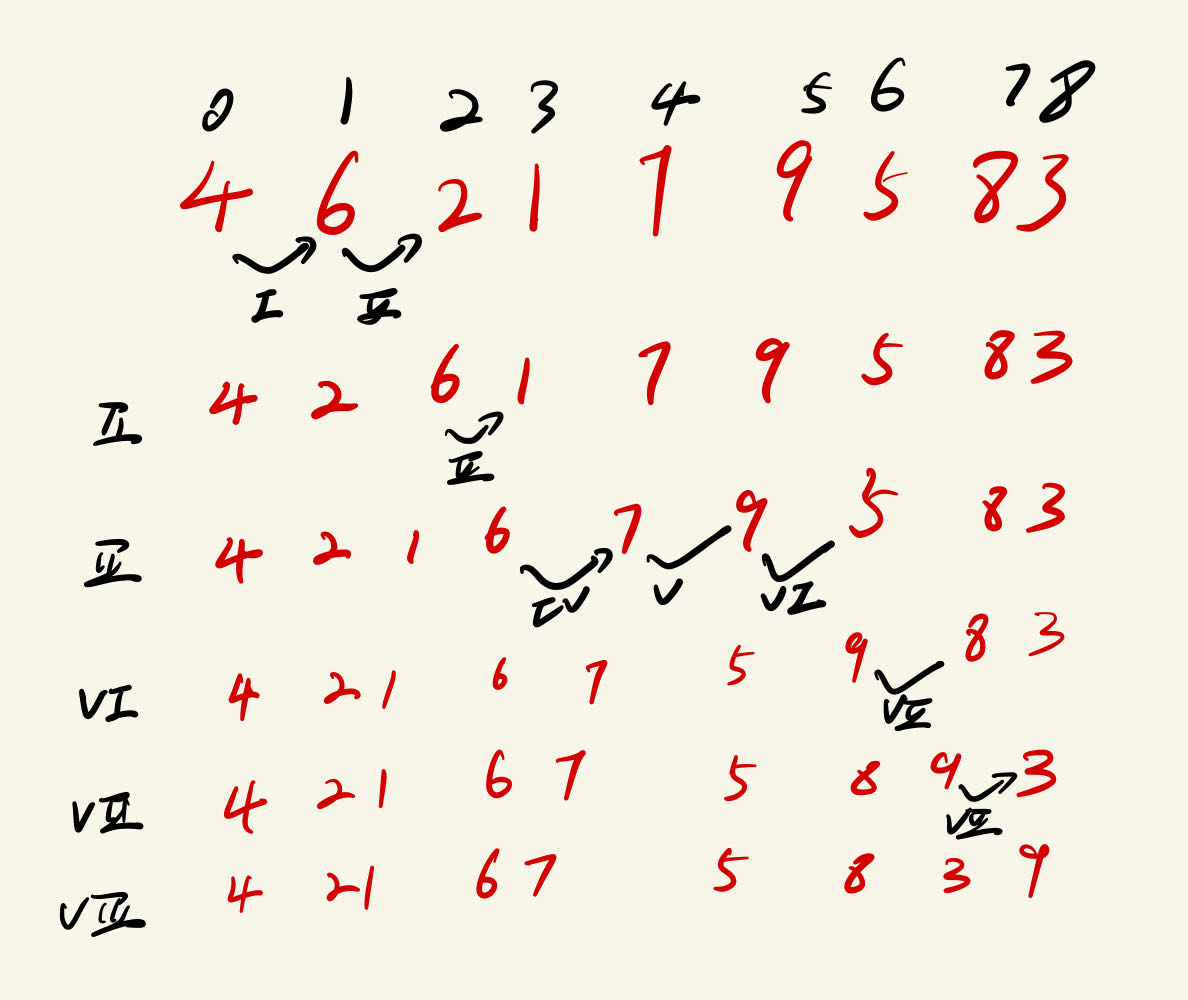 0 1 2 3 4 5 6 7 8
4 6 2 1 7 9 5 8 3
I II
II 4 2 6 1 7 9 5 8 3
III
III 4 2 1 6 7 9 5 8 3
IV V VI
VI 4 2 1 6 7 5 9 8 3
VII
VII 4 2 1 6 7 5 8 9 3
VIII
VIII 4 2 1 6 7 5 8 3 9